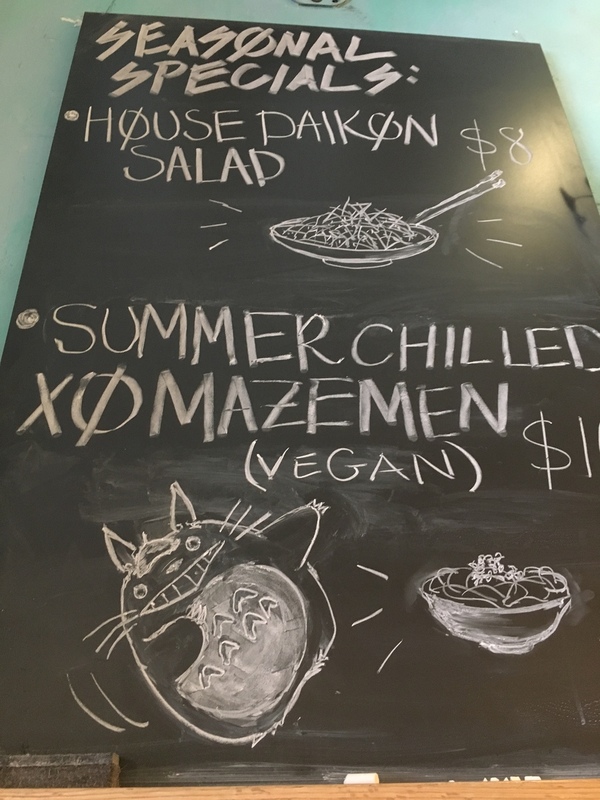 SEASØNAL
SPECIALS:
HØUSE DAIKØN $8
SALAD
SUMMER CHILLED
XØ MAZEMEN
(VEGAN)